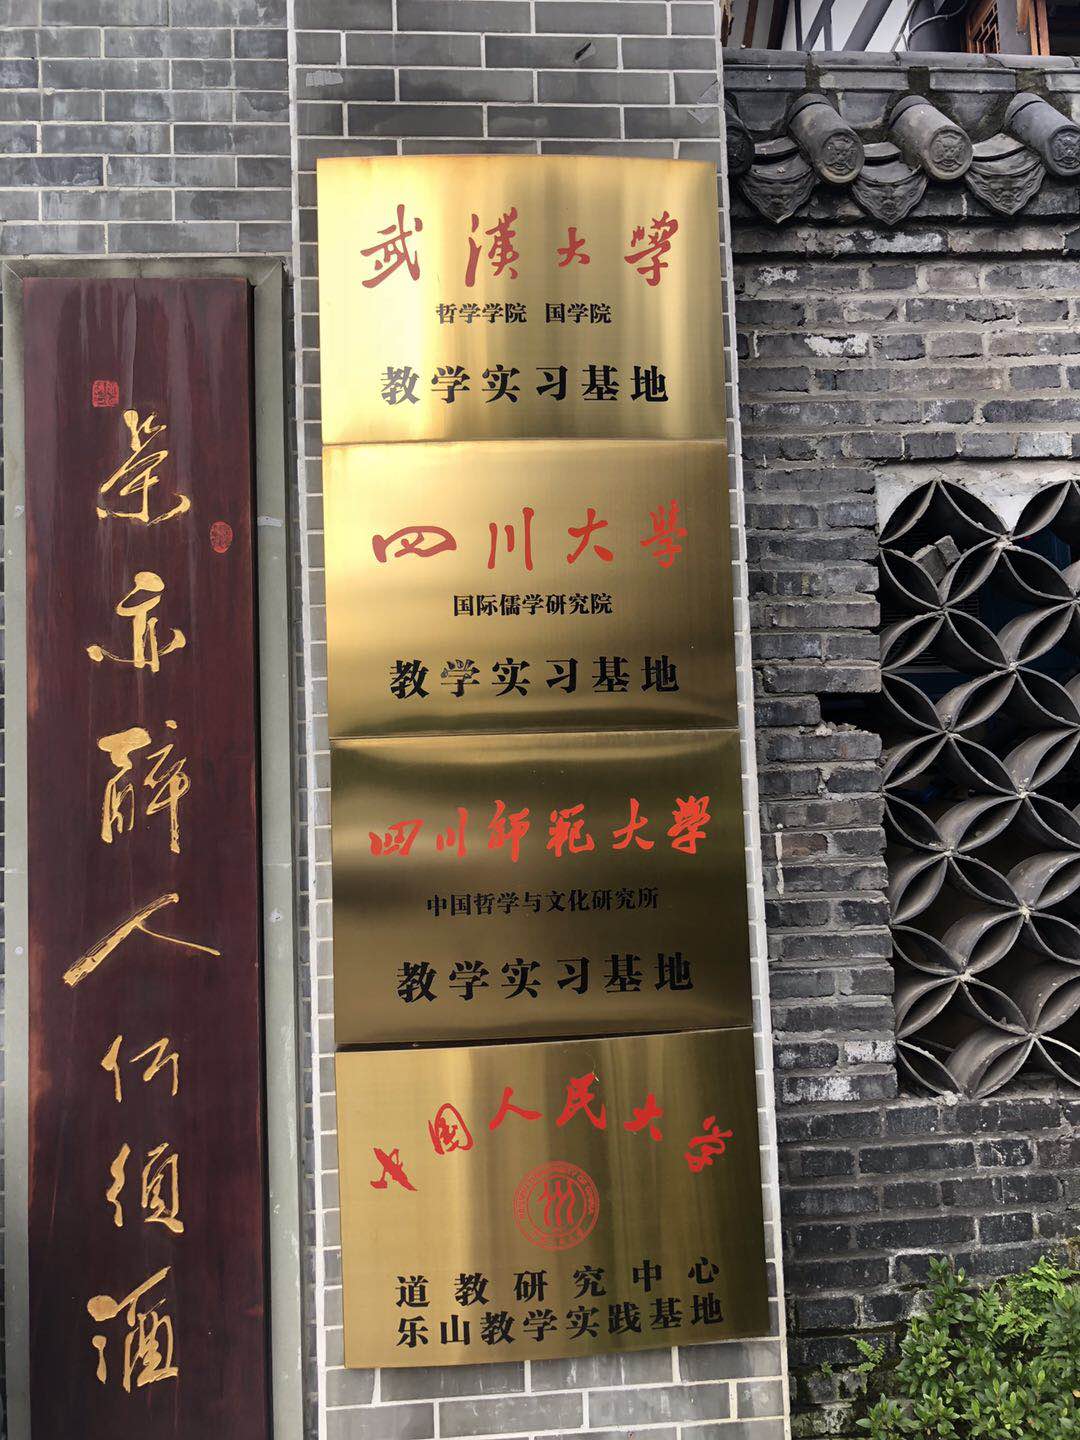 茶亦醉人何須酒
武漢大學
哲学学院 国学院
教学实习基地
四川大學
国际儒学研究院
教学实习基地
四川師範大學
中国哲学与文化研究所
教学实习基地
中國人民大学
RENMIN UNIVERSITY OF CHINA
道教研究中心
乐山教学实践基地